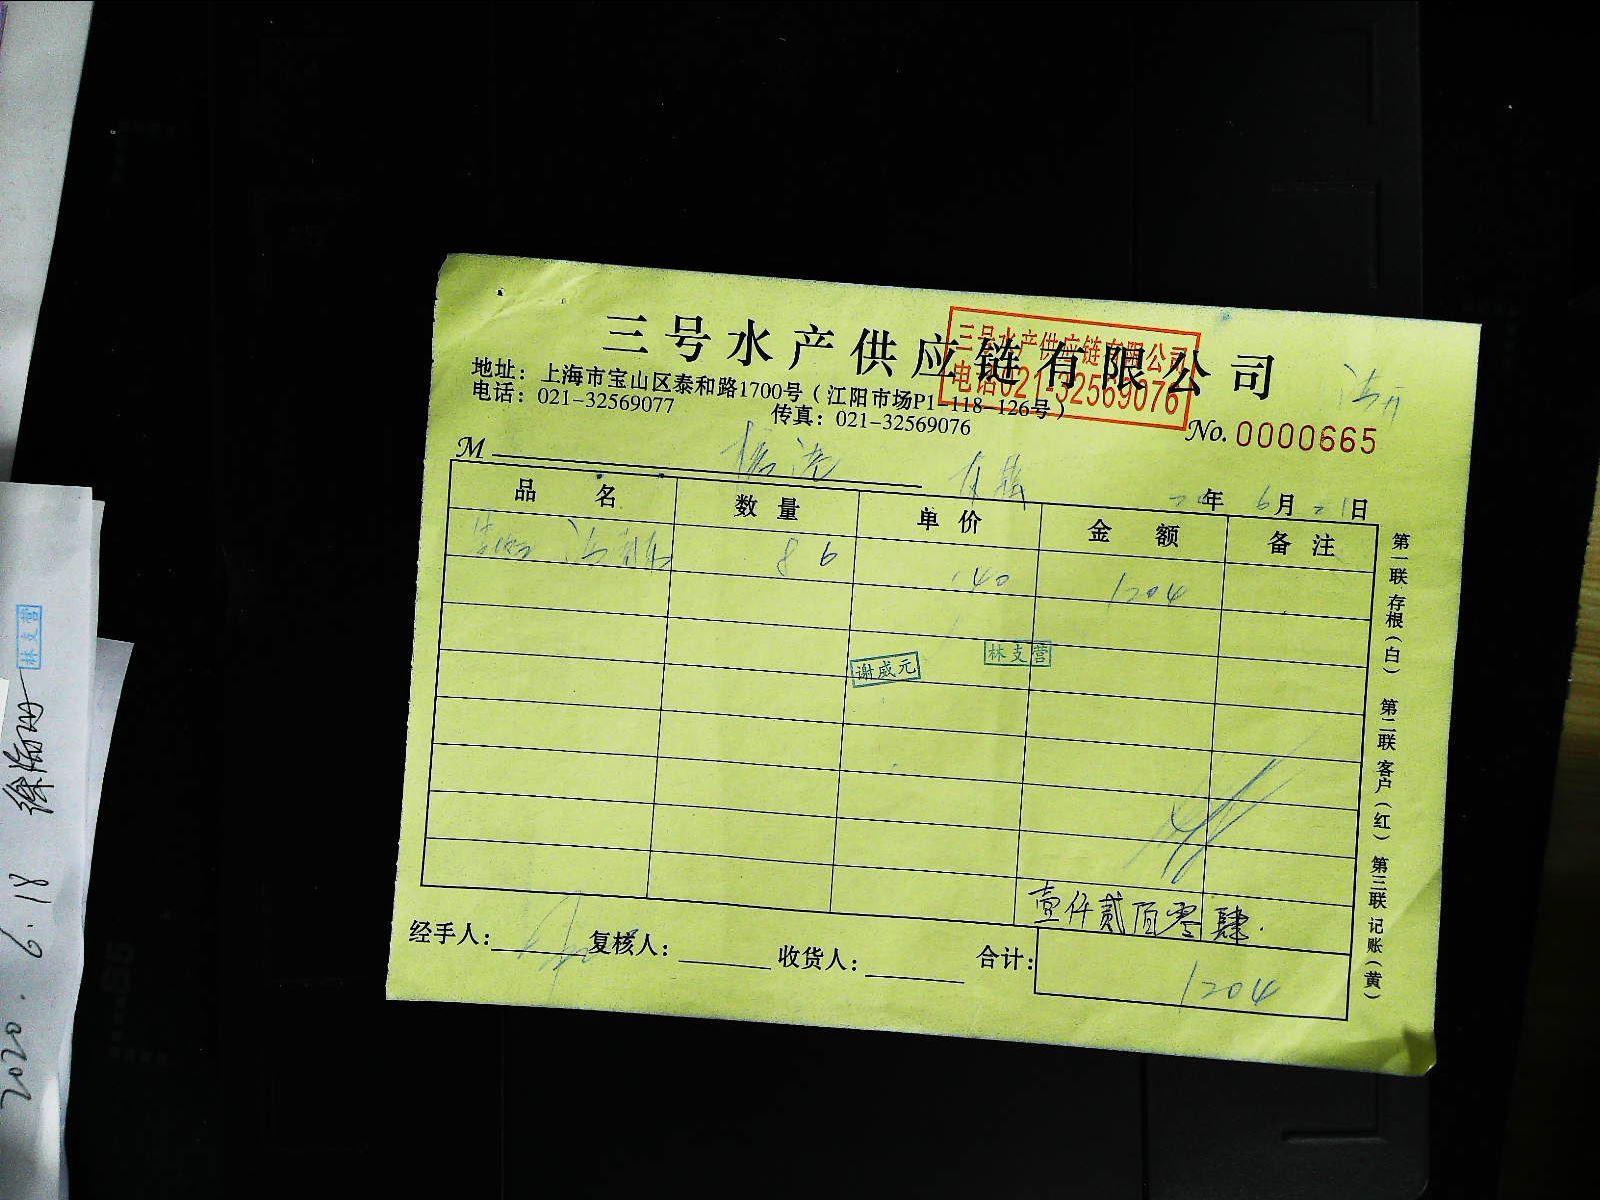 三号水产供应链有限公司
三号水产供应链有限公司
电话021-32569076
地址：上海市宝山区泰和路1700号（江阳市场P1-118-126号）
电话：021-32569077 传真：021-32569076
No. 0000665
M
年 6月 21日
品名 数量 单价 金额 备注
86 140 1204
谢威元 林支营
壹仟贰佰零肆.
经手人： 复核人： 收货人： 合计： 1204
第一联 存根（白） 第二联 客户（红） 第三联 记账（黄）
林支营
2020.6.18